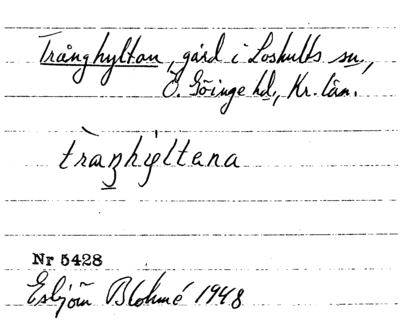 Trånghyltan, gård i Loshults sn.,
Ö. Göinge hd., Kr. län.
Nr 5428
Esbjörn Blohmé 1948